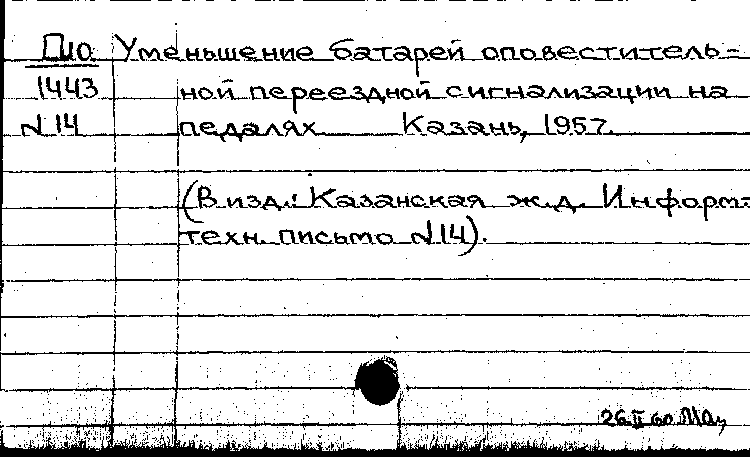 П10 Уменьшение батарей оповеститель-
1443 ной переездной сигнализации на
N14 педалях Казань, 1957.
(В изд.: Казанская ж.д. Информ.
техн. письмо N14).
26 II 60